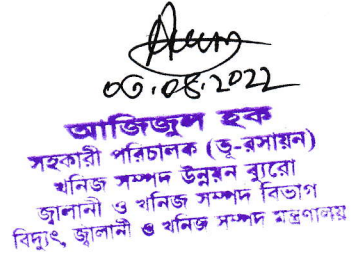 ০৩.০৪.2022
আজিজুল হক
সহকারী পরিচালক (ভূ-রসায়ন)
খনিজ সম্পদ উন্নয়ন ব্যুরো
জ্বালানী ও খনিজ সম্পদ বিভাগ
বিদ্যুৎ, জ্বালানী ও খনিজ সম্পদ মন্ত্রণালয়